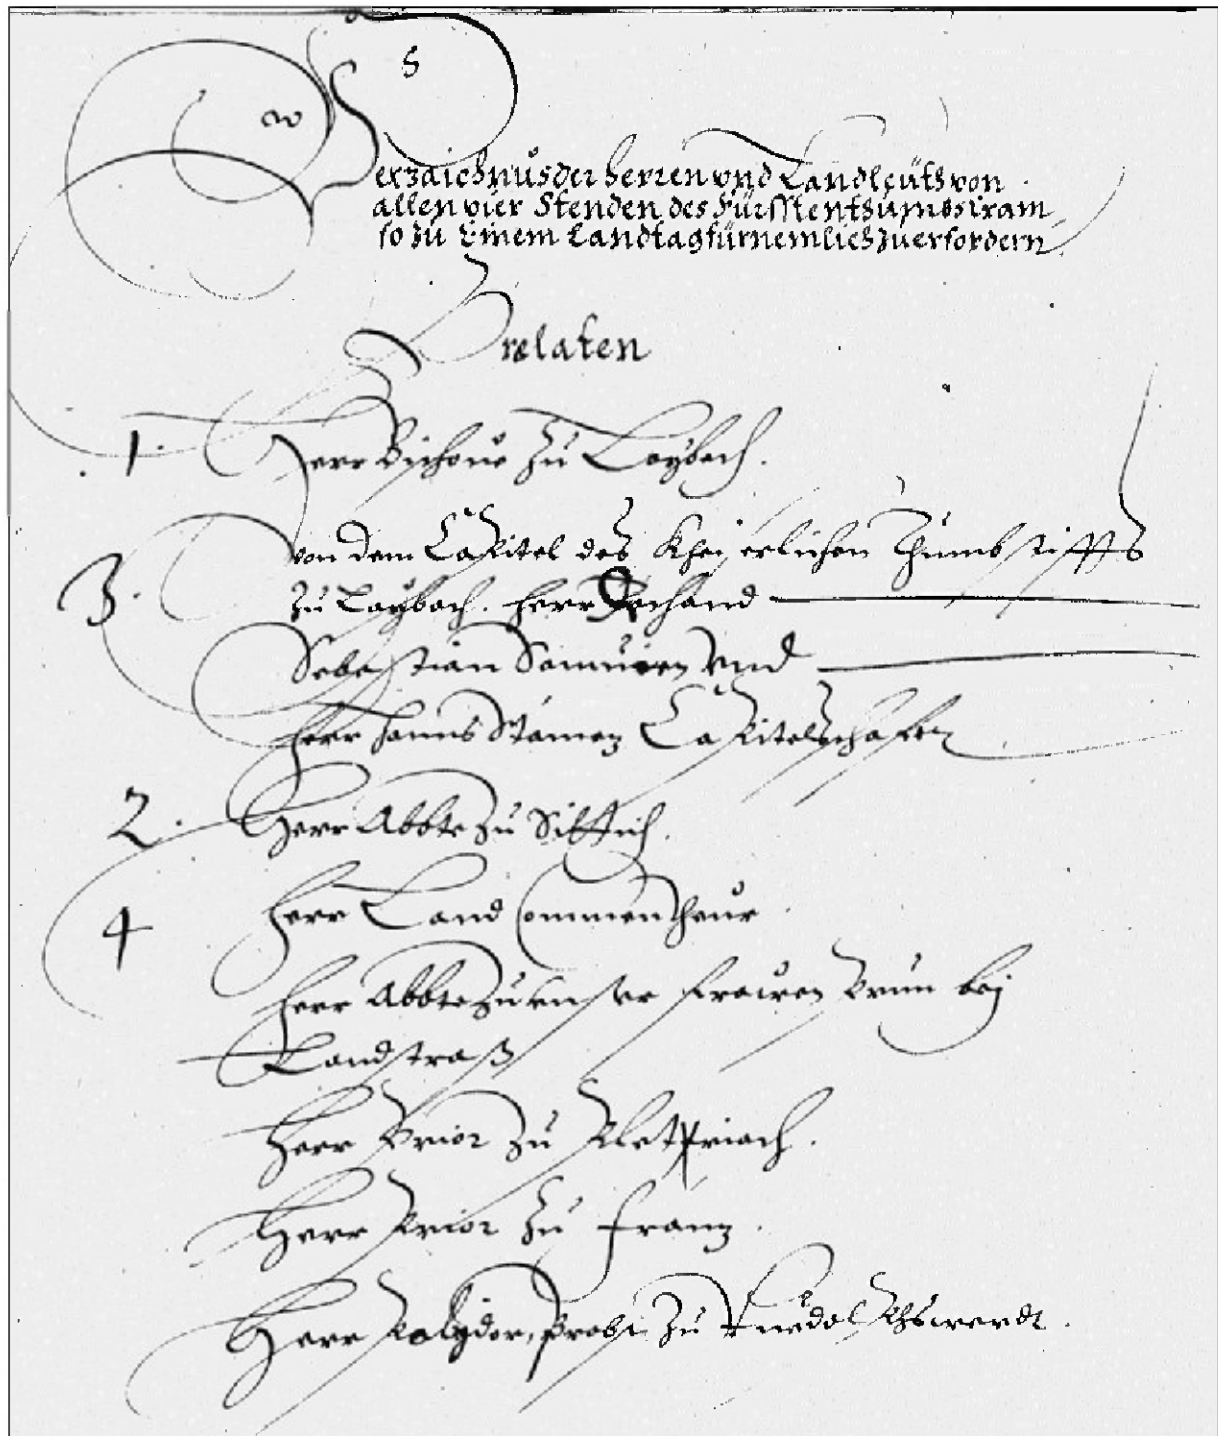 S
w
Verzaichnus der Herren vnd Landleüth von
allen vier Stenden des Fürsstenthumbs Crain
so zu Einem Landtag fürnemlich zuerfordern
Prelaten
1. Herr Bischoue zu Laybach.
von dem Capitel des Khaiserlichen Thumbstiffts
3. zu Laybach. Herr Dechand
Sebastian vnd
Herr Hanns Capitels
2. Herr Abbte zu Sittich.
4 Herr Land Commentheur
Herr Abbte zu vnser Frawen Brun bey
Landstraß
Herr Prior zu Pletriach.
Herr Prior zu Franz.
Herr Polydor, Probst zu Ruedolphswerdt.